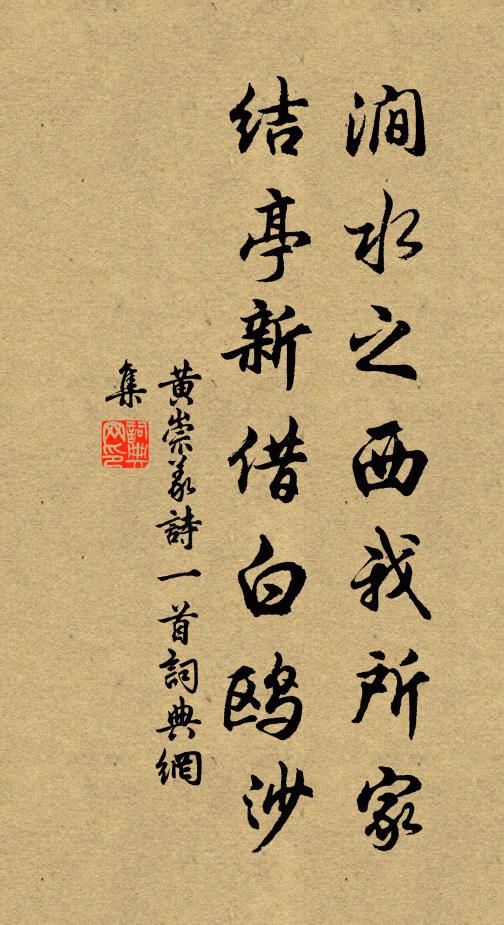 澗水之西我所家
結亭新借白鸥沙
黄崇義詩一首詞典網
集
詞典
网印